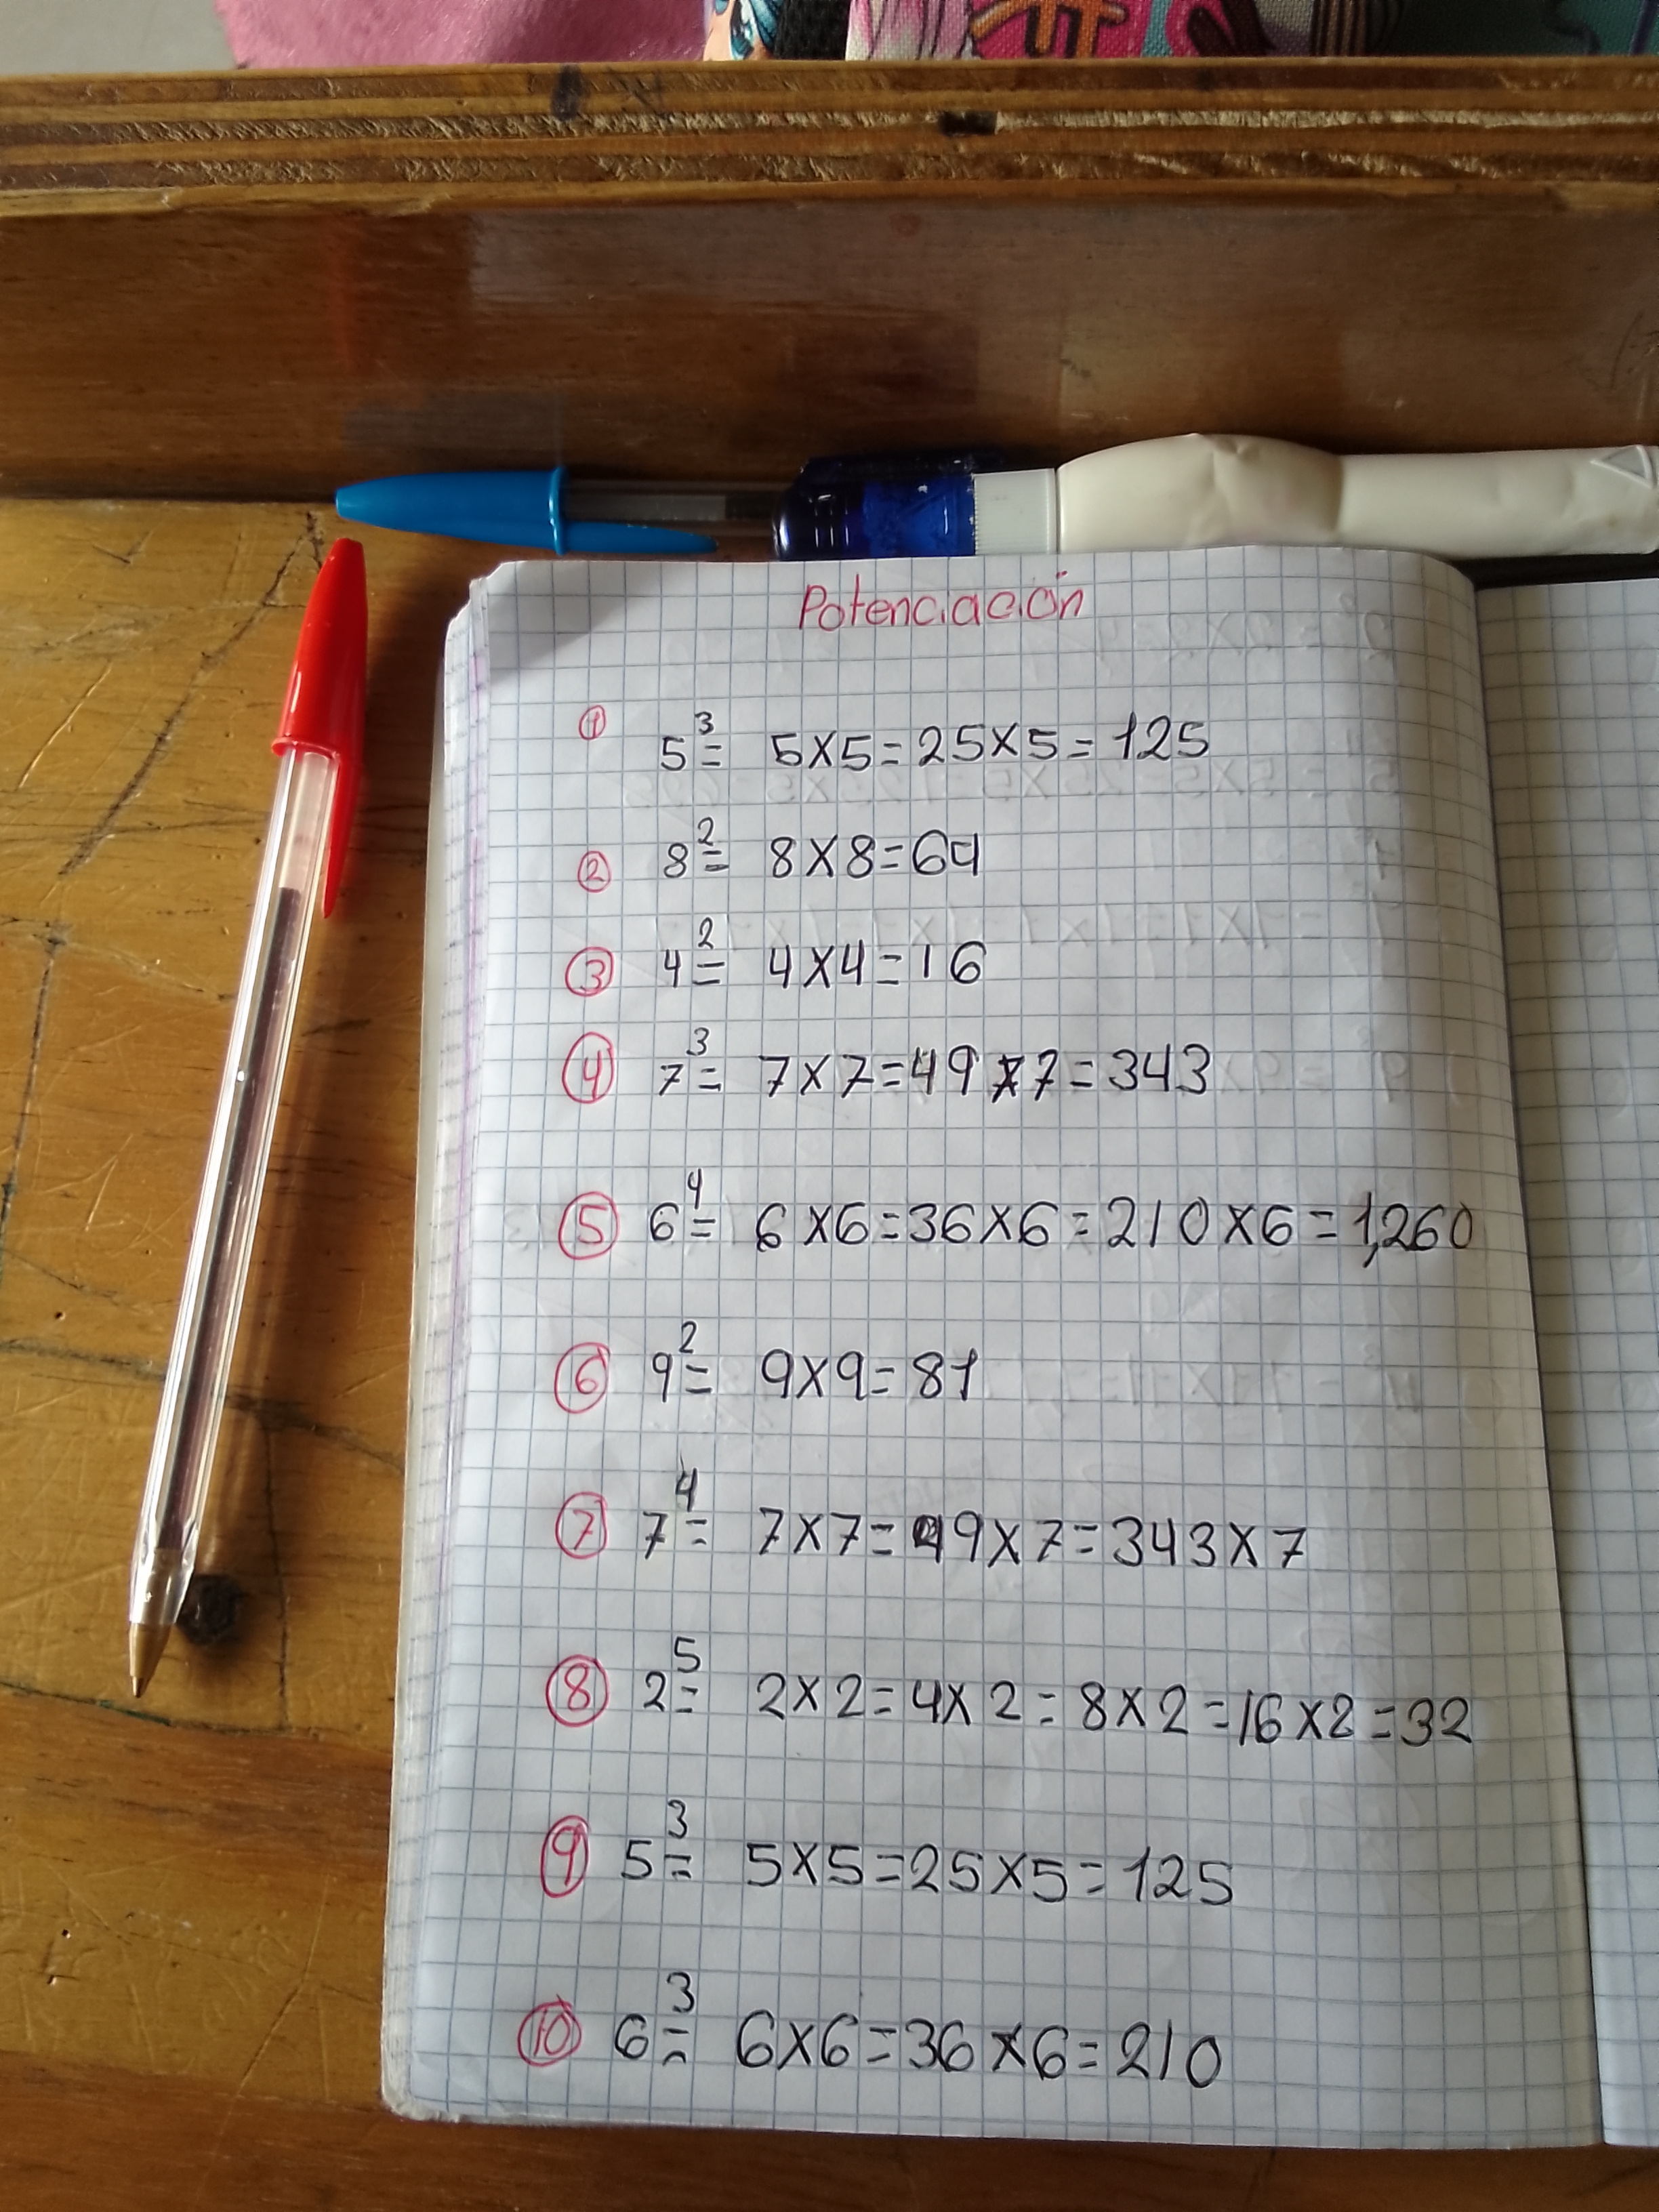 Potenciación
① 5³= 5x5=25x5=125
② 8²= 8x8=64
③ 4²= 4x4=16
④ 7³= 7x7=49x7=343
⑤ 6⁴= 6x6=36x6=210x6=1,260
⑥ 9²= 9x9=81
⑦ 7⁴= 7x7=49x7=343x7
⑧ 2⁵= 2x2=4x2=8x2=16x2=32
⑨ 5³= 5x5=25x5=125
⑩ 6³= 6x6=36x6=210